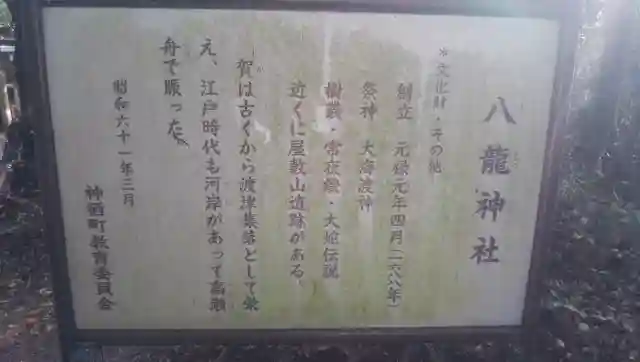 八龍神社
*文化財・その他
創立 元禄元年四月(一六八八年)
祭神 大海渡神
樹叢・常夜燈・大蛇伝説
近くに屋敷山遺跡がある。
賀は古くから渡津集落として栄
え、江戸時代も河岸があって高瀬
舟で賑った。
昭和六十一年三月
神栖町教育委員会